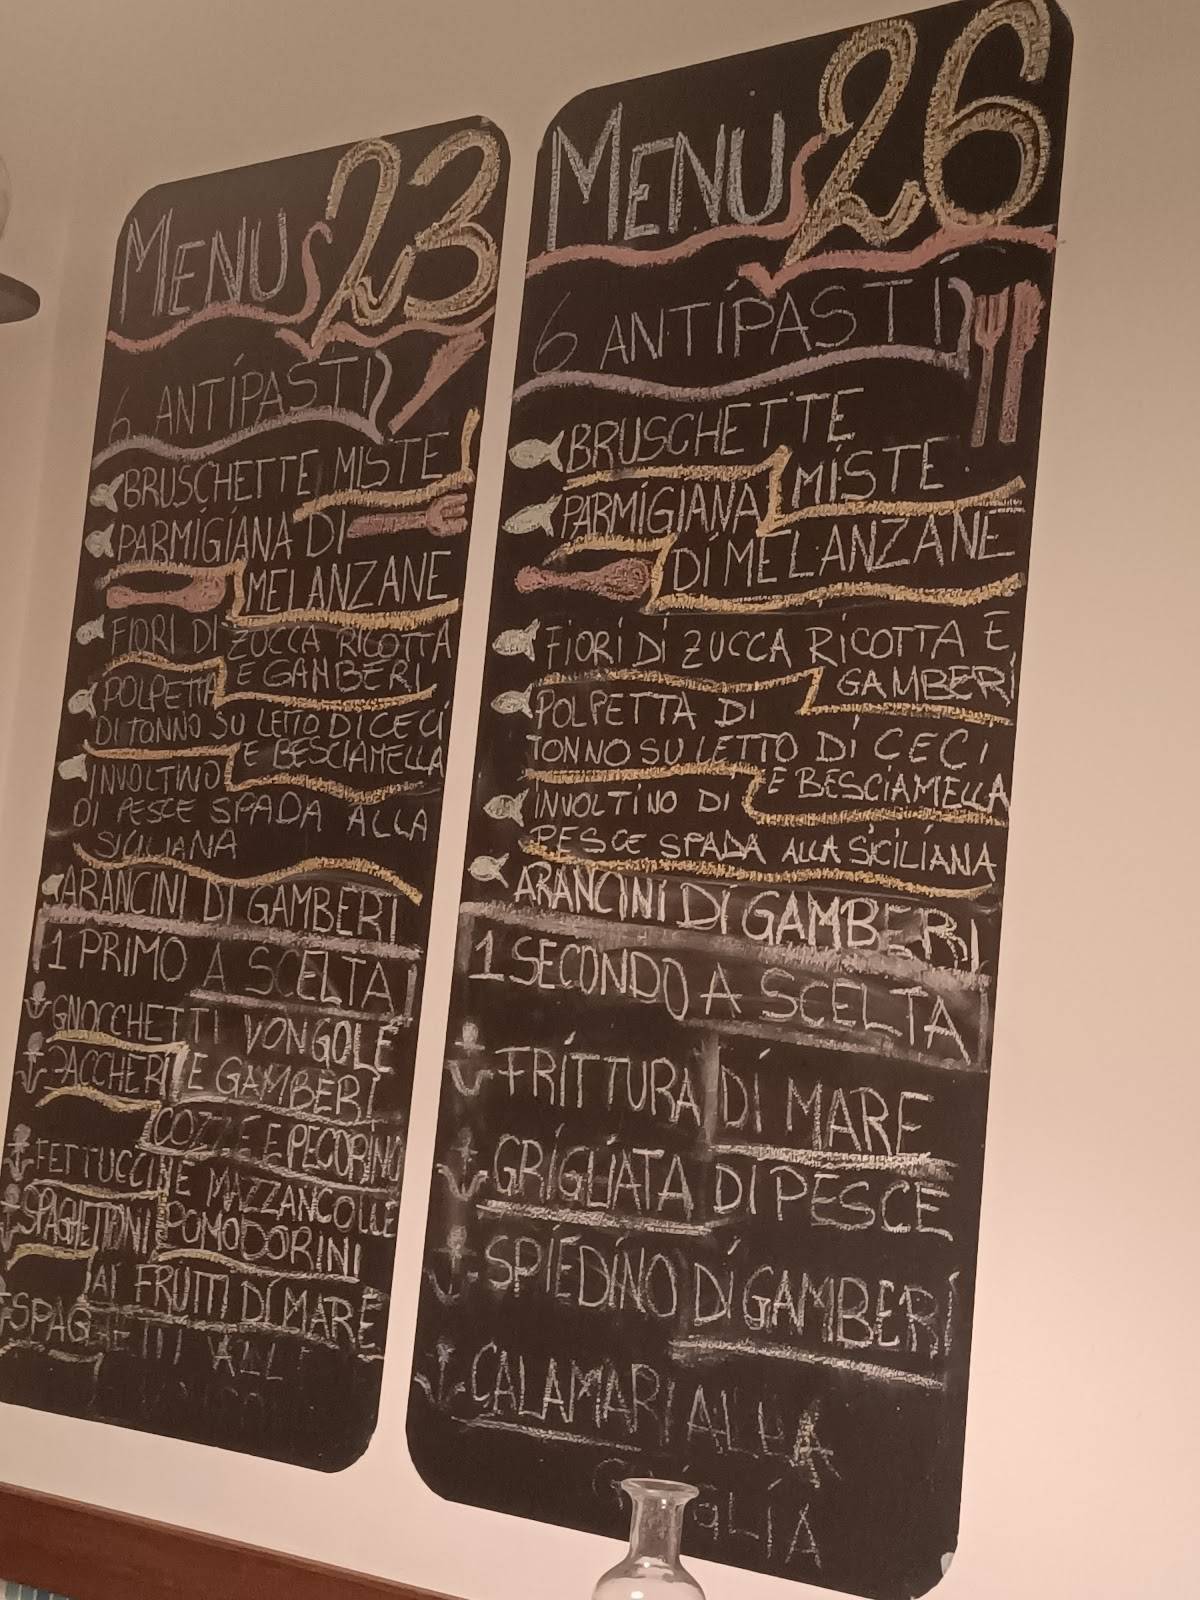 MENU 23
6 ANTIPASTI
BRUSCHETTE MISTE
PARMIGIANA DI
MELANZANE
FIORI DI ZUCCA RICOTTA
E GAMBERI
POLPETTA
DI TONNO SU LETTO DI CECI
E BESCIAMELLA
INVOLTINO
DI PESCE SPADA ALLA
SICILIANA
ARANCINI DI GAMBERI
1 PRIMO A SCELTA
GNOCCHETTI VONGOLE
E GAMBERI
PACCHERI
COZZE E PECORINO
FETTUCCINE MAZZANCOLLE
POMODORINI
SPAGHETTONI
AI FRUTTI DI MARE
SPAGHETTI ALLE
MENU 26
6 ANTIPASTI
BRUSCHETTE
MISTE
PARMIGIANA
DI MELANZANE
FIORI DI ZUCCA RICOTTA E
GAMBERI
POLPETTA DI
TONNO SU LETTO DI CECI
E BESCIAMELLA
INVOLTINO DI
PESCE SPADA ALLA SICILIANA
ARANCINI DI GAMBERI
1 SECONDO A SCELTA
FRITTURA DI MARE
GRIGLIATA DI PESCE
SPIEDINO DI GAMBERI
CALAMARI ALLA